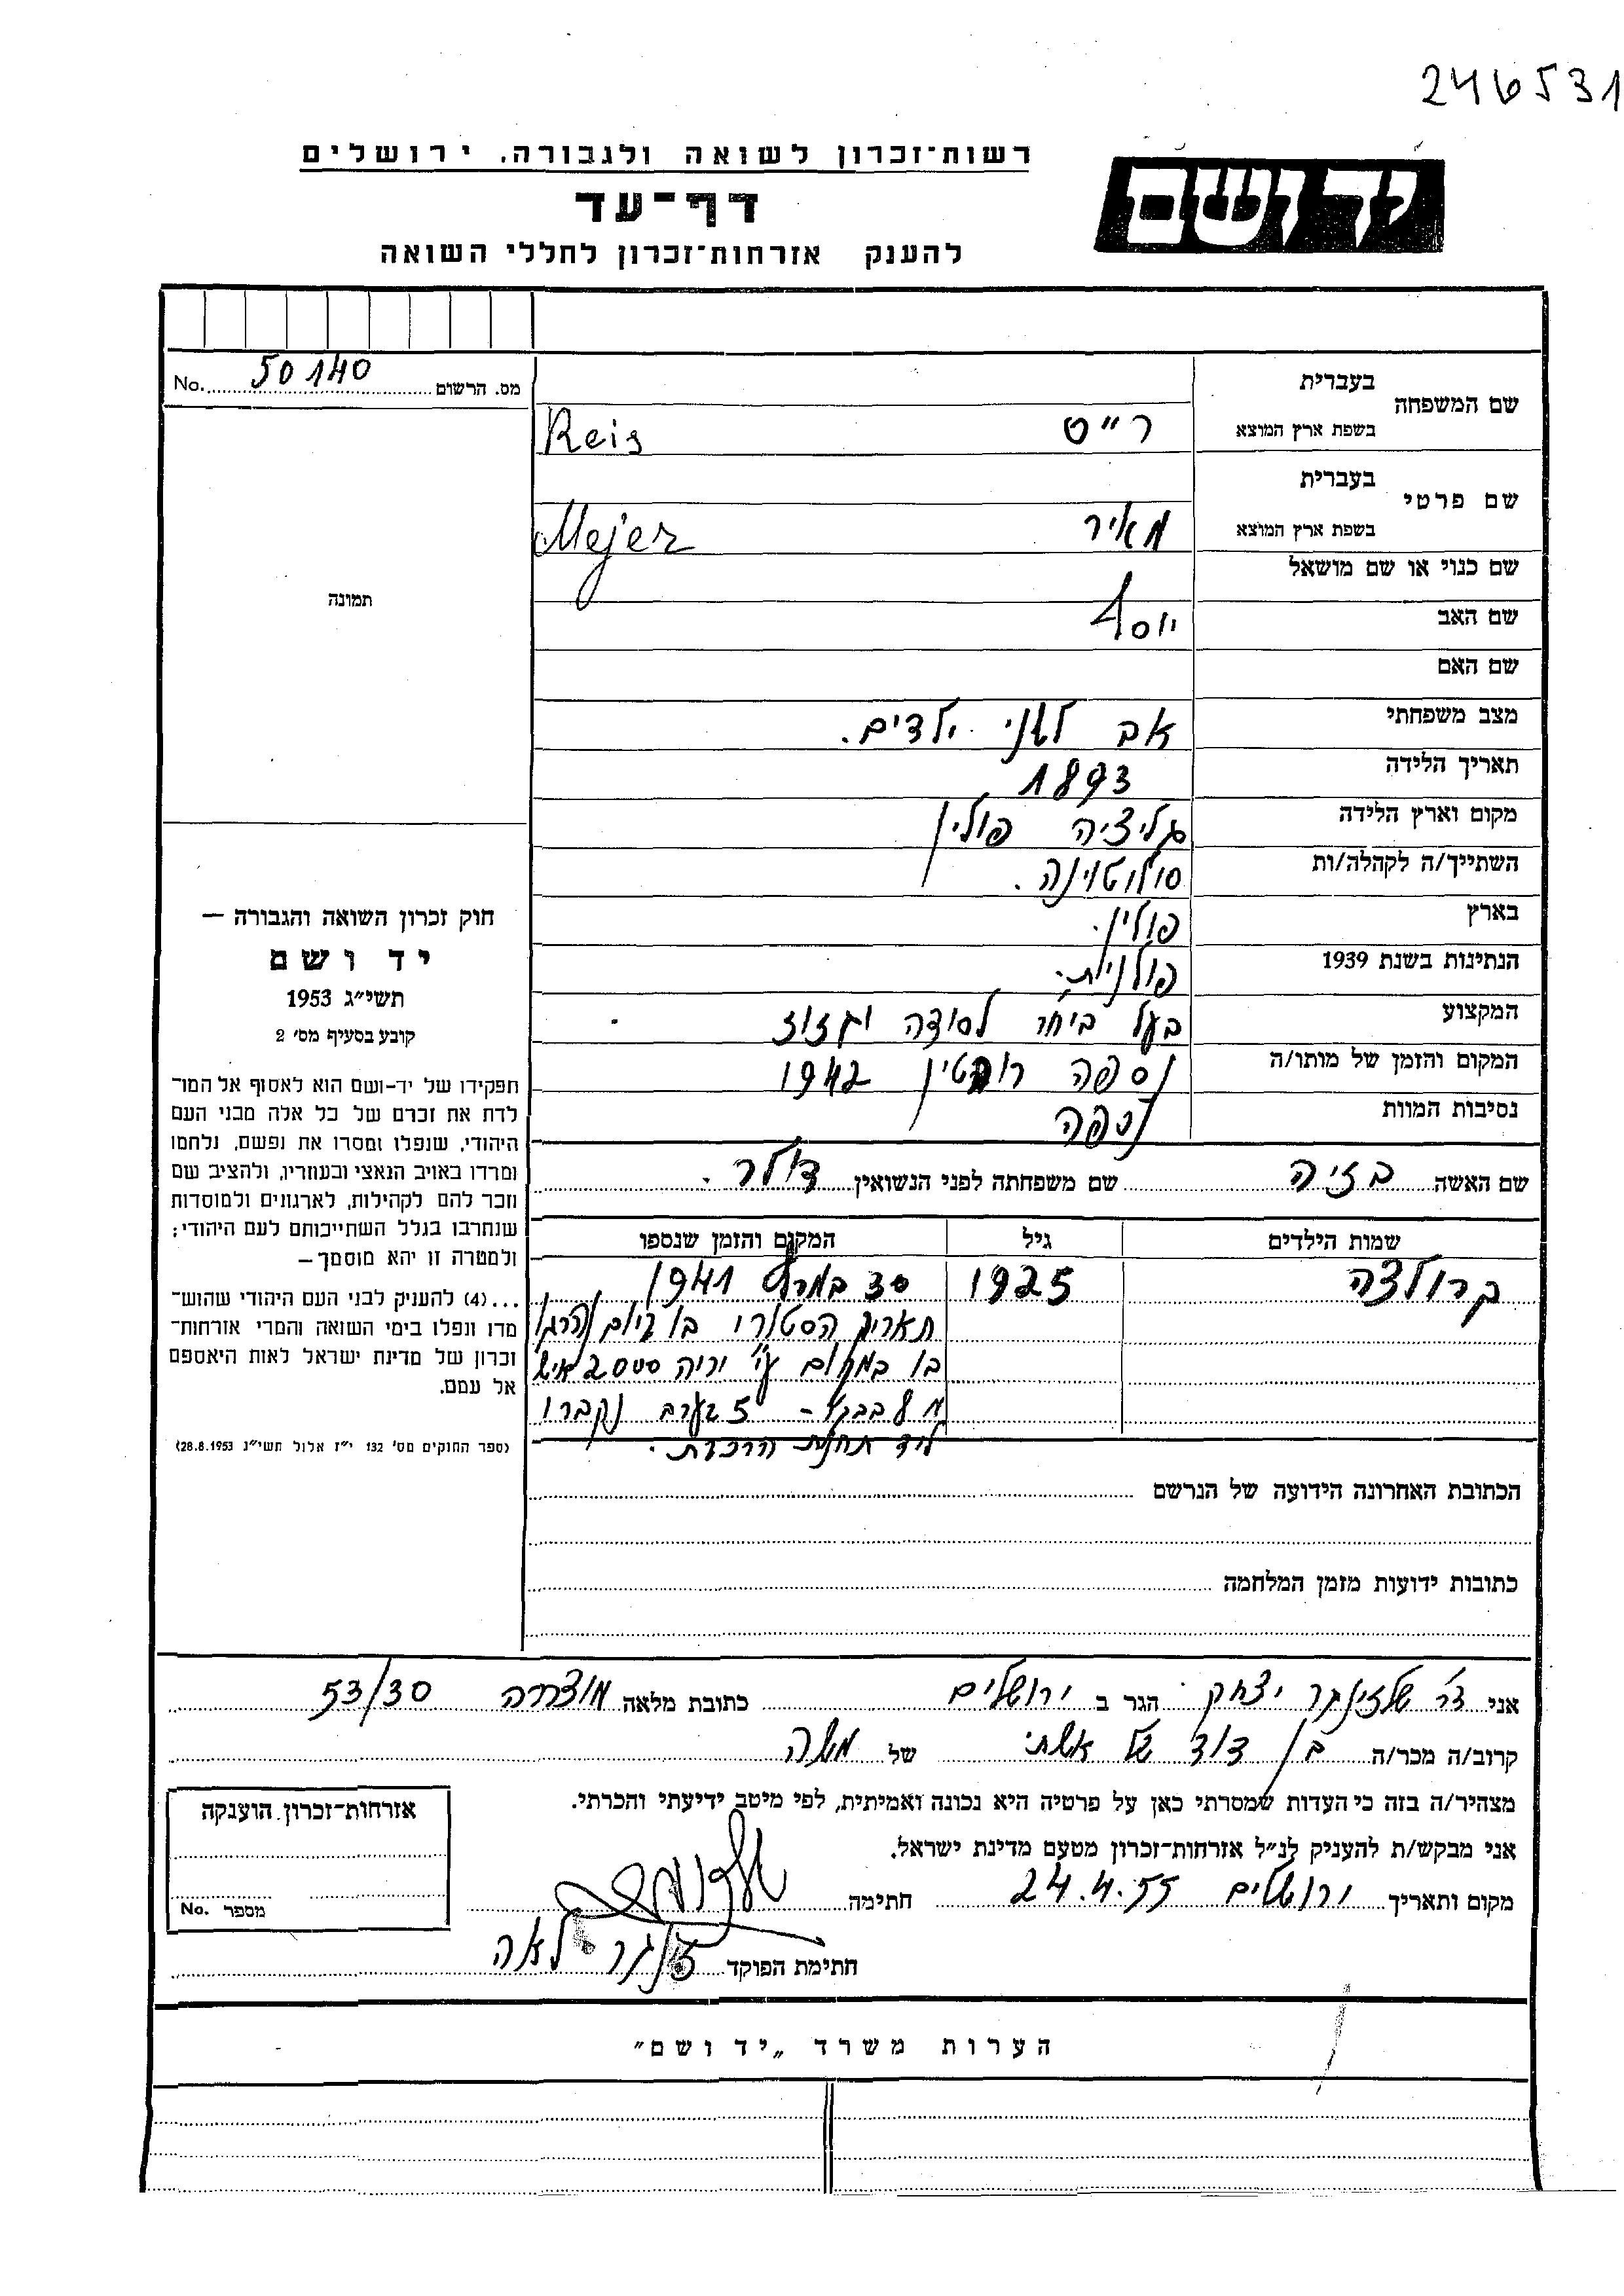 246531
רשות־זכרון לשואה ולגבורה. ירושלים
יד ושם
דף־עד
להענק אזרחות־זכרון לחללי השואה
מס. הרשום 50140 No.
שם המשפחה בעברית
בשפת ארץ המוצא רייס Reis
שם פרטי בעברית
בשפת ארץ המוצא מאיר Mejer
שם כנוי או שם מושאל
שם האב יוסף
שם האם
מצב משפחתי אב לשני ילדים.
תאריך הלידה 1893
מקום וארץ הלידה גליציה פולין
השתייך/ה לקהלה/ות
בארץ פולין.
הנתינות בשנת 1939 פולנית.
המקצוע בעל ביח״ר לסודה וגזוז
המקום והזמן של מותו/ה נספה רוהטין 1942
נסיבות המוות נספה
שם האשה בזיה שם משפחתה לפני הנשואין
שמות הילדים גיל המקום והזמן שנספו
1925 30 במרץ 1941
תאריך הסטורי בו ביום נהרגו
בו במקום ע״י יריה 2000 איש
מ 8 בבקר – 5 בערב נקברו
ליד תחנת הרכבת.
תמונה
חוק זכרון השואה והגבורה —
יד ושם
תשי״ג 1953
קובע בסעיף מס׳ 2
תפקידו של יד-ושם הוא לאסוף אל המו־
לדת את זכרם של כל אלה מבני העם
היהודי, שנפלו ומסרו את נפשם, נלחמו
ומרדו באויב הנאצי ובעוזריו, ולהציב שם
וזכר להם לקהילות, לארגונים ולמוסדות
שנחרבו בגלל השתייכותם לעם היהודי;
ולמטרה זו יהא מוסמך—
...(4) להעניק לבני העם היהודי שהוש־
מדו ונפלו בימי השואה והמרי אזרחות־
זכרון של מדינת ישראל לאות היאספם
אל עמם.
(ספר החוקים מס׳ 132 י״ז אלול תשי״ג 28.8.1953)
הכתובת האחרונה הידועה של הנרשם
כתובות ידועות מזמן המלחמה
אני ד״ר שלזינגר יצחק הגר ב ירושלים כתובת מלאה מוצררה 53/30
קרוב/ה מכר/ה בן דוד של אשתי של
מצהיר/ה בזה כי העדות שמסרתי כאן על פרטיה היא נכונה ואמיתית, לפי מיטב ידיעתי והכרתי.
אני מבקש/ת להעניק לנ״ל אזרחות־זכרון מטעם מדינת ישראל.
מקום ותאריך ירושלים 24.4.55 חתימה
חתימת הפוקד זינגר לאה
אזרחות־זכרון הוענקה
מספר No.
הערות משרד „יד ושם״